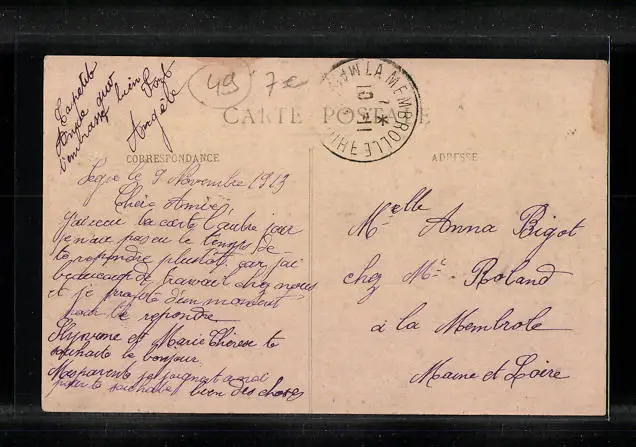 49 7€
Ta petite
Amie qui
t'embrasse bien fort
Angèle
CARTE POSTALE
LA MEMBROLLE
10 11
MAINE
CORRESPONDANCE
ADRESSE
Segré le 9 Novembre 1913
Chère Amie,
J'ai reçu ta carte l'autre jour
je n'ai pas eu le temps de
te repondre plus tôt, car j'ai
beaucoup de travail chez nous
et je profite d'un moment
pour te repondre.
et Marie Thérèse te
souhaite le bonjour.
Mes parents se joignent a moi
pour te souhaiter bien des choses
Melle Anna Bigot
chez Mr. Roland
à la Membrole
Maine et Loire